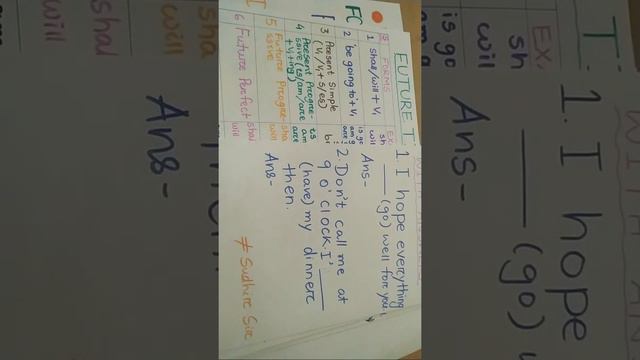 FUTURE T:
FORMS EX.
1 shall/will + V1 sh
will
2 'be going to' + V1 is go
am g
are
3 Present Simple
(V1/V1 + s/es)
4 Present Progre- is
ssive (is/am/are am
+ V1 + ing) are
5 Future Progre- sha
ssive will
6 Future Perfect shal
will
1. I hope everything
____ (go) well for you
Ans-
2. Don't call me at
9 o'clock. I' ____
(have) my dinner
then.
Ans-
# Sudhir Sir